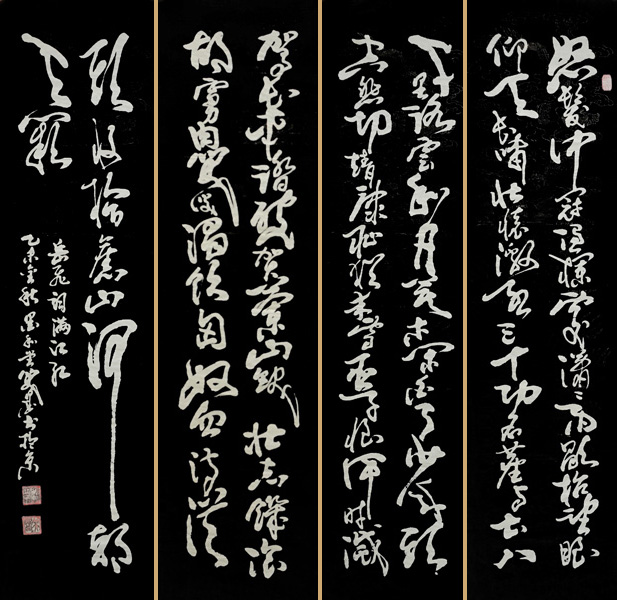 怒髮冲冠憑欄處瀟瀟雨歇抬望眼
仰天長嘯壯懷激烈三十功名塵與土八
千里路雲和月莫等閑白了少年頭
空悲切靖康耻猶未雪臣子恨何時滅
駕長車踏破賀蘭山缺壯志饑餐
胡虜肉笑談渴飲匈奴血待從
頭收拾舊山河朝
天闕
岳飛詞滿江紅
乙未 書於京